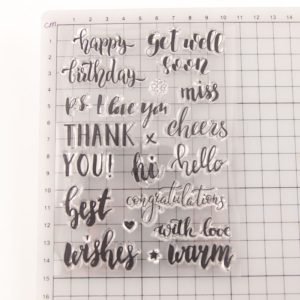 happy
birthday
get well
soon
P.S. I love you
miss
THANK
YOU!
x
cheers
hi
hello
best
wishes
congratulations
with love
warm
cm
0 1 2 3 4 5 6 7 8 9 10 11 12 13
1
2
3
4
5
6
7
8
9
10
11
12
13
14
15